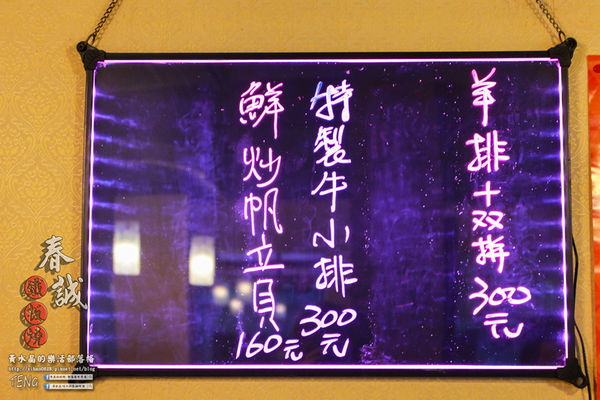 羊排+双拼 300元
特製牛小排 300元
鮮炒帆立貝 160元
春誠
鐵板燒
黃水晶的樂活部落格
TENG